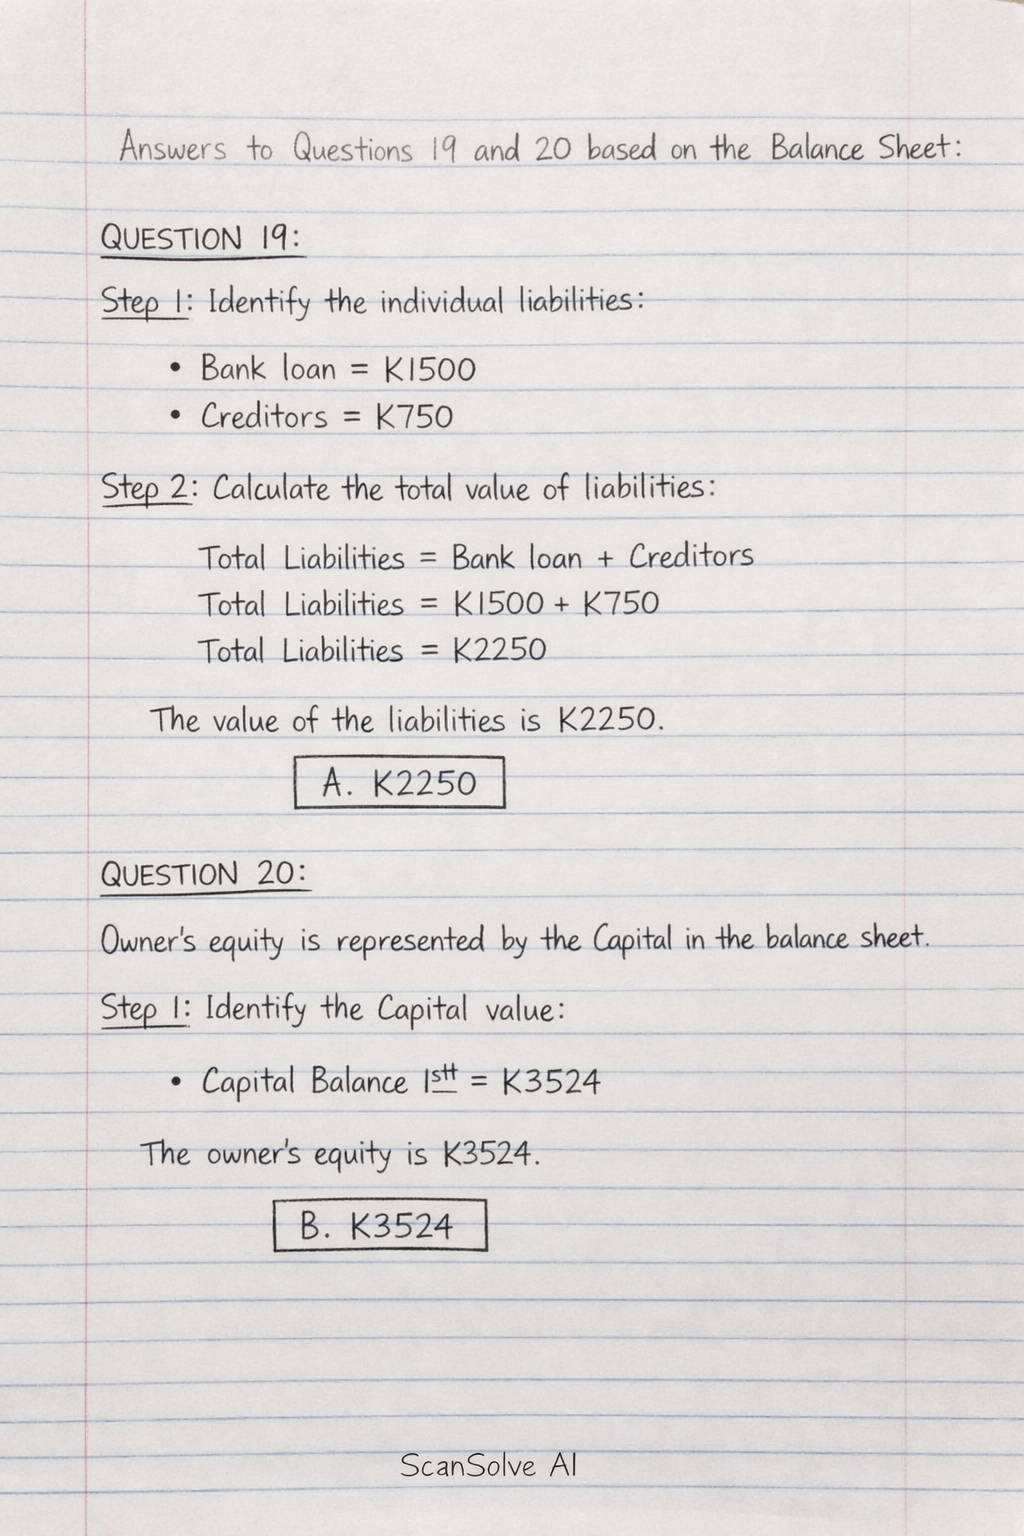 Answers to Questions 19 and 20 based on the Balance Sheet:
QUESTION 19:
Step 1: Identify the individual liabilities:
• Bank loan = K1500
• Creditors = K750
Step 2: Calculate the total value of liabilities:
Total Liabilities = Bank loan + Creditors
Total Liabilities = K1500 + K750
Total Liabilities = K2250
The value of the liabilities is K2250.
A. K2250
QUESTION 20:
Owner's equity is represented by the Capital in the balance sheet.
Step 1: Identify the Capital value:
• Capital Balance 1stt = K3524
The owner's equity is K3524.
B. K3524
ScanSolve AI